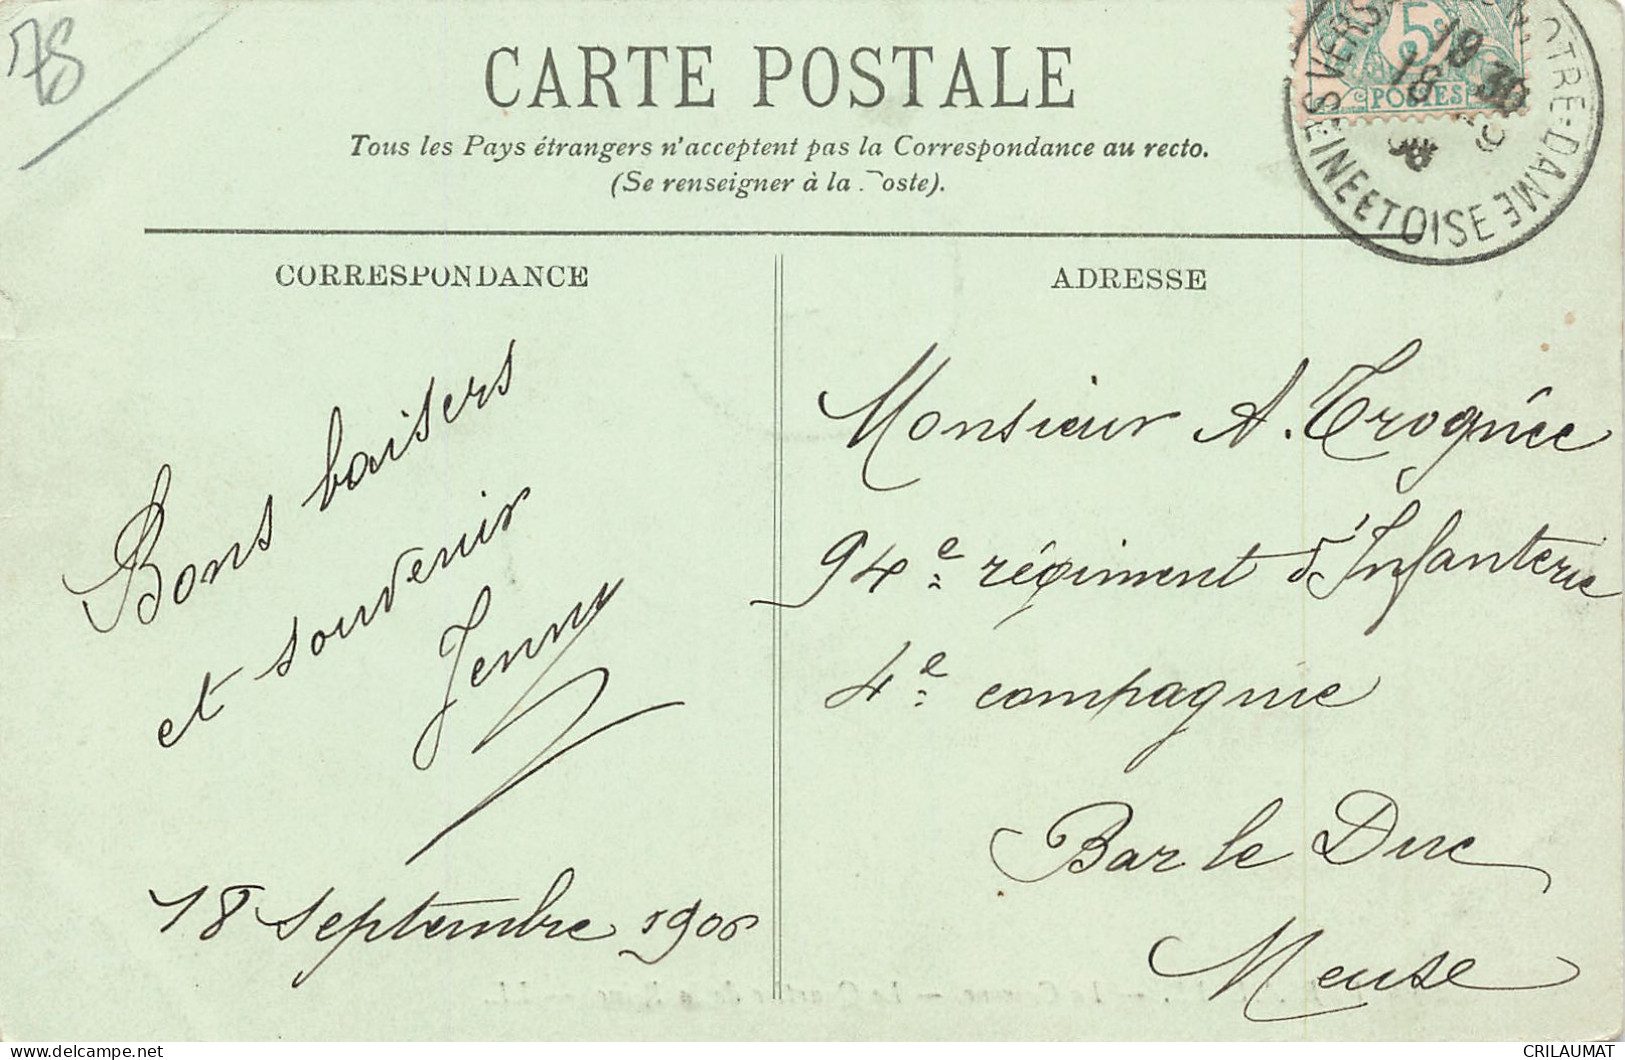 78
CARTE POSTALE
Tous les Pays étrangers n'acceptent pas la Correspondance au recto.
(Se renseigner à la oste).
5c
POSTES
VERS NOTRE-DAME
SEINE ET OISE
19 30
18 9
06
CORRESPONDANCE
Bons baisers
et souvenir
Jenny
18 Septembre 1906
ADRESSE
Monsieur A. Trognée
94e régiment d'Infanterie
4e compagnie
Bar le Duc
Meuse
CRILAUMAT